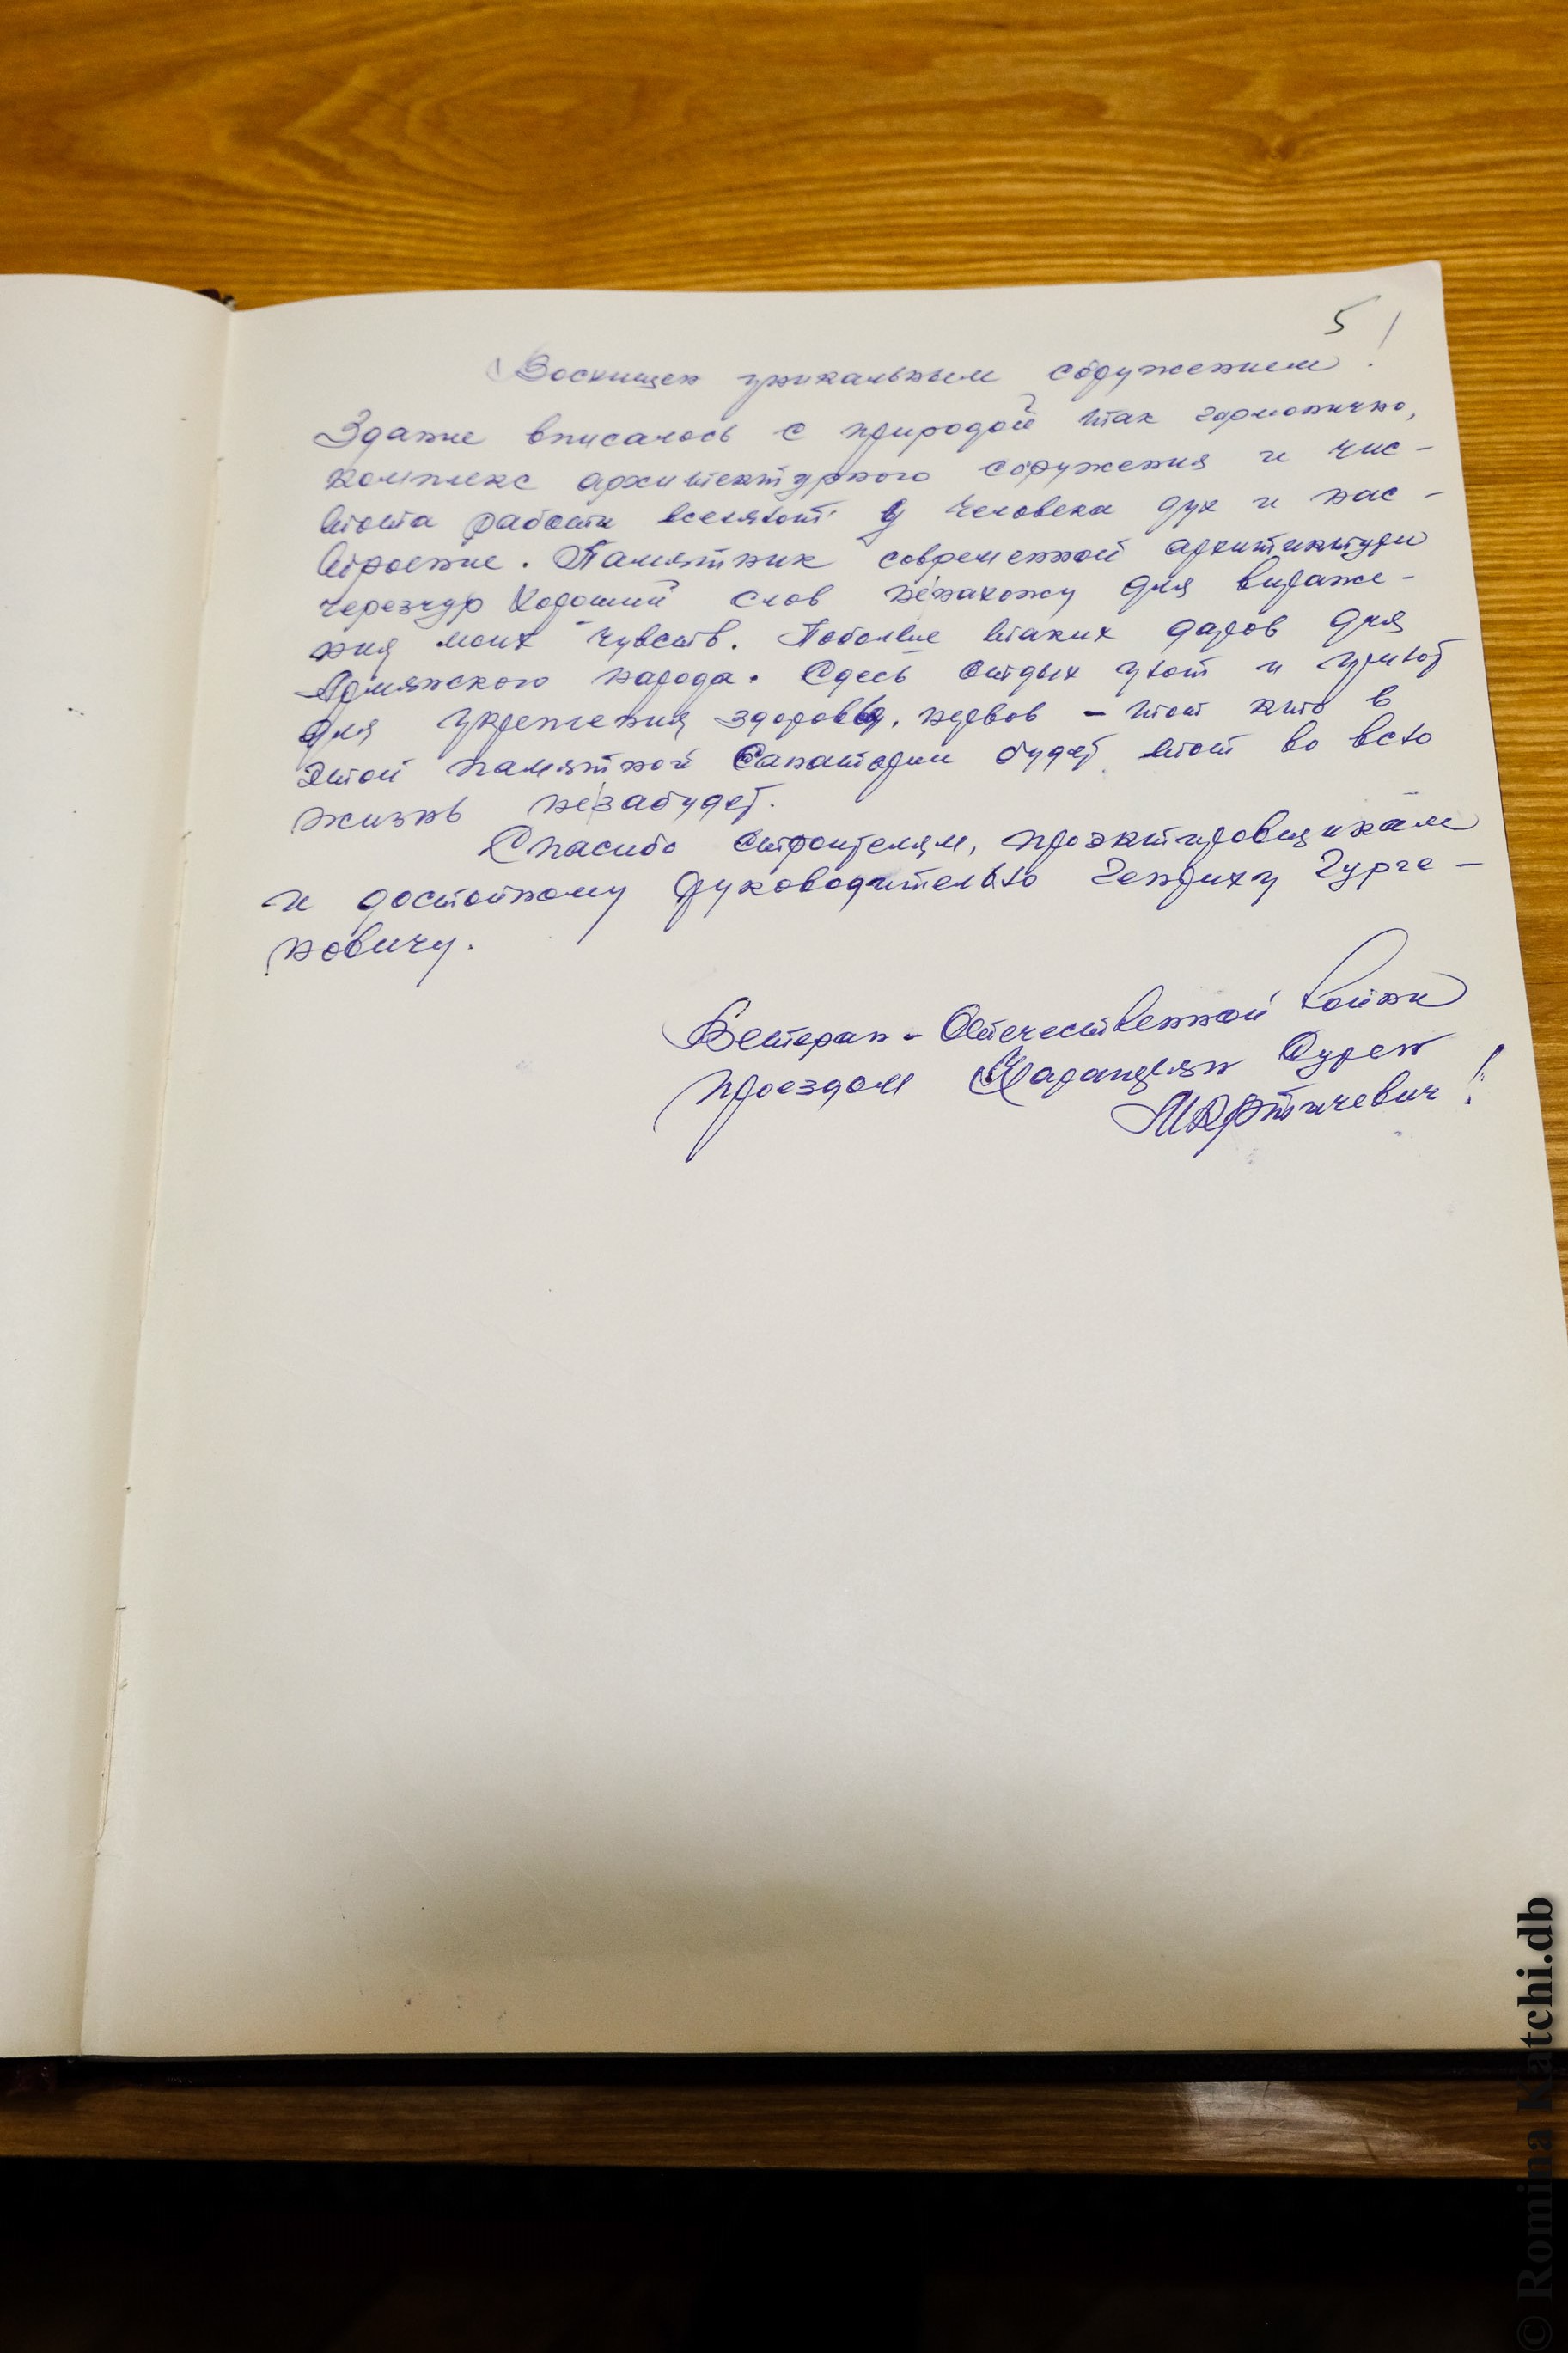 5
Восхищен уникальным сооружением!
Здание вписалось с природой так гармонично,
комплекс архитектурного сооружения и чис-
тота работи вселяют у человека дух и нас-
троение. Памятник современной архитиктури
черезчур хороший слов ненахожу для выраже-
ния моих чувств. Поболее таких даров для
Армянского народа. Сдесь отдых уют и приют
для укрепения здоровья, нервов - тот кто в
этой памятной Санатории будет тот во всю
жизнь незабудет.
Спасибо строителям, проэктировщикам
и достойному руководителью Генриху Гурге-
новичу.
Ветеран - Отечественной Войни
проездом Сурен
Мкртичевич!
© Romina Katchi.db